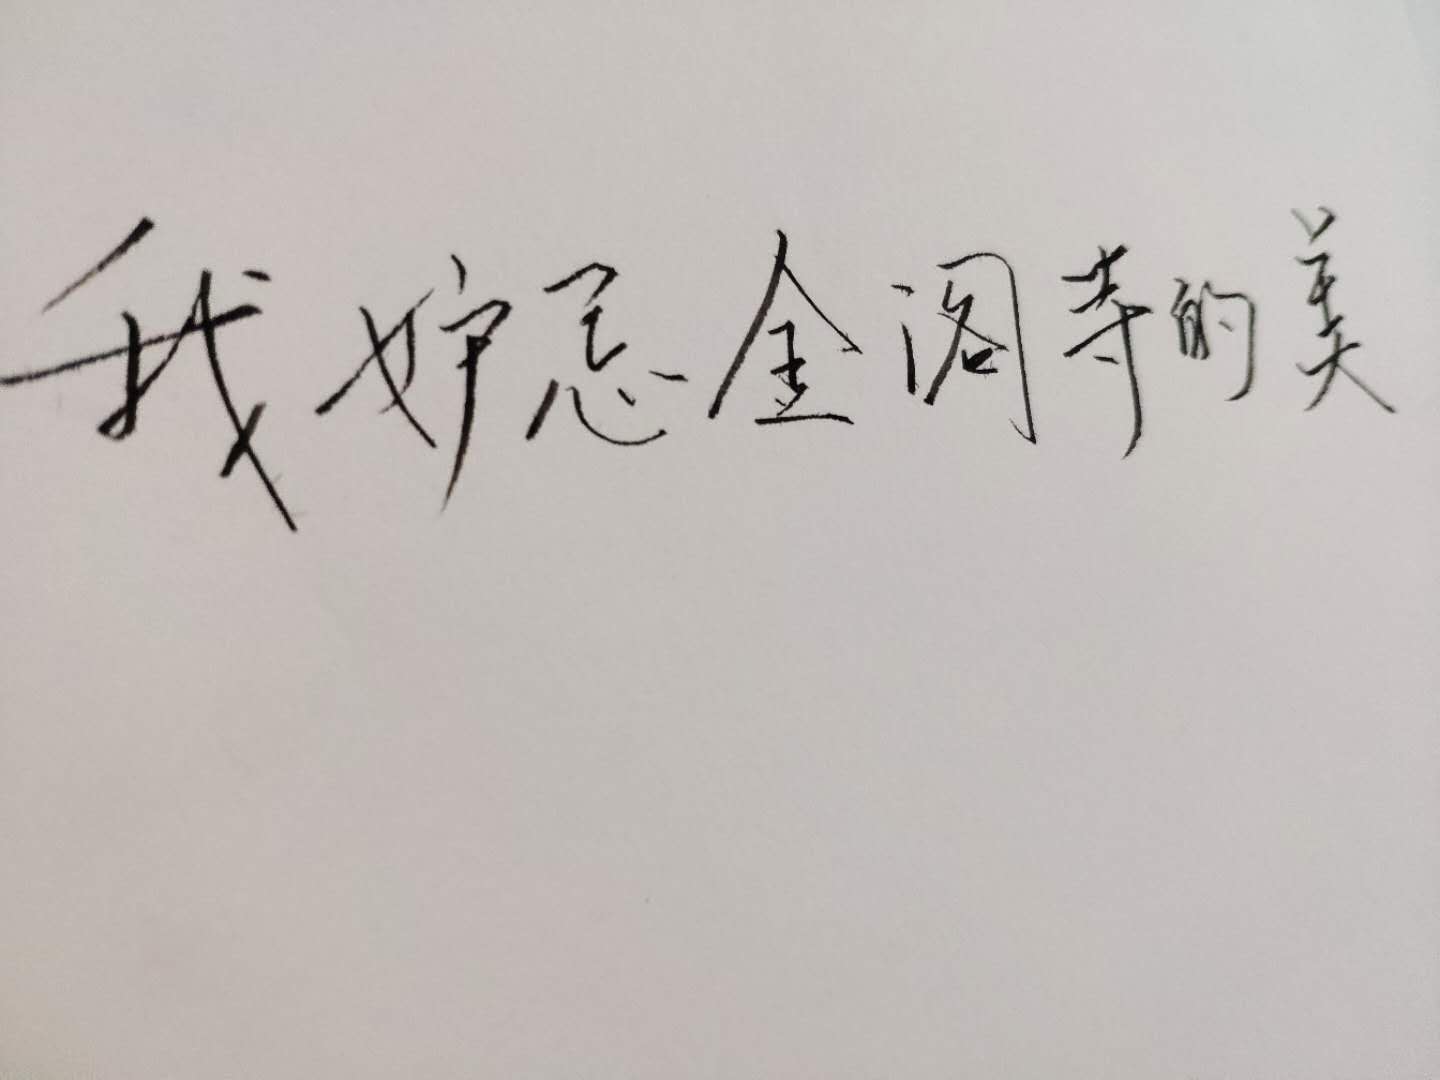 我妒忌金阁寺的美